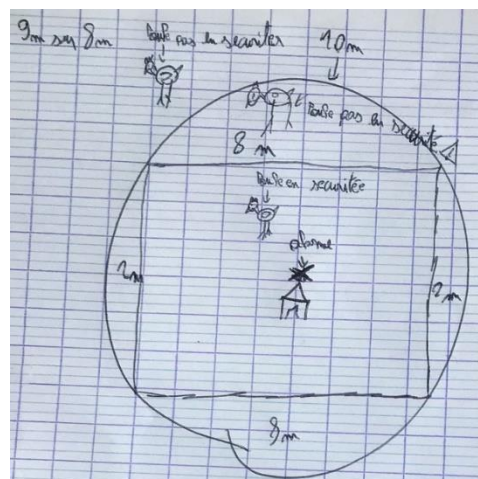 9m sur 8m
Poule pas en securiter
10m
Poule pas en securité
8 m
Poule en securitée
alarme
2m
2m
8m